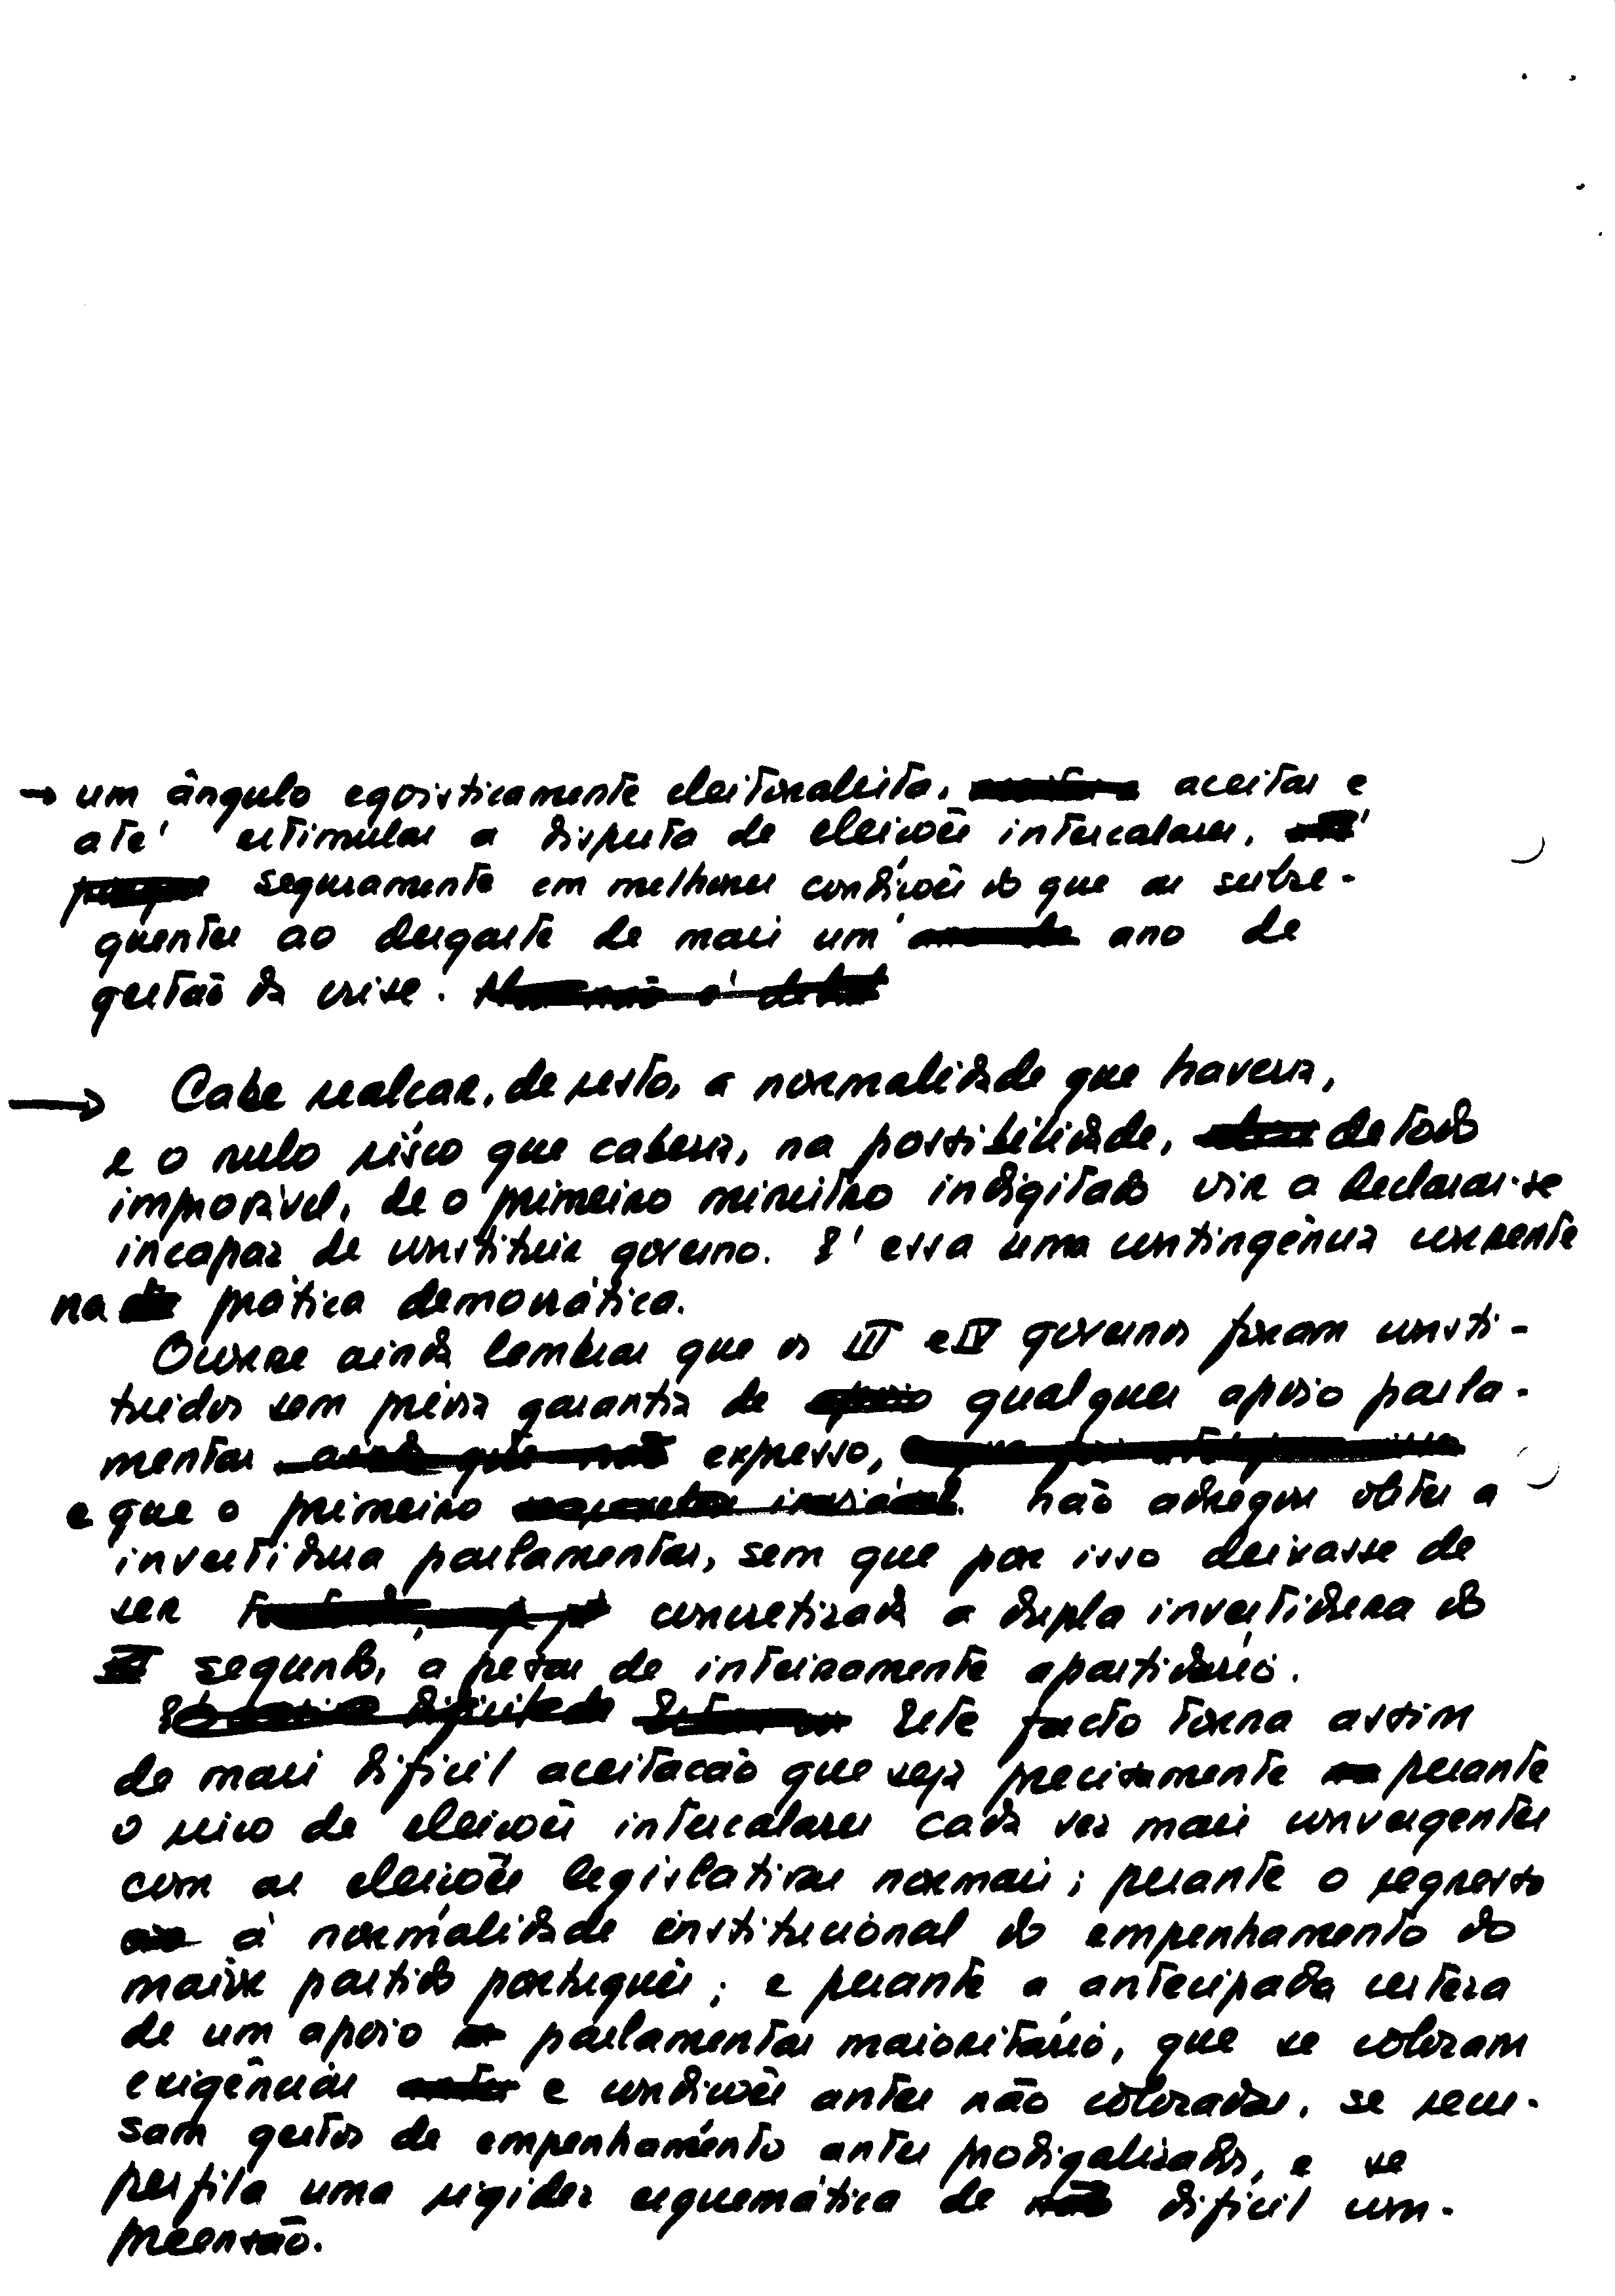 → um ângulo egoisticamente eleitoralista, aceitar e
até estimular a disputa de eleições intercalares,
seguramente em melhores condições do que as subse-
quentes ao desgaste de mais um ano de
gestão da crise.
→ Cabe realçar, de resto, a normalidade que haveria,
e o nulo risco que caberia, na possibilidade, de todo
improvável, de o primeiro ministro indigitado vir a declarar-se
incapaz de constituir governo. É essa uma contingência corrente
na prática democrática.
Ocorre ainda lembrar que os III e IV governos foram consti-
tuidos sem prévia garantia de qualquer apoio parla-
mentar expresso,
e que o primeiro não obter a
investidura parlamentar, sem que por isso deixasse de
ser concretizada a dupla investidura do
segundo, apesar de inteiramente apartidário.
Este facto torna assim
de mais dificil aceitação que seja precisamente perante
o risco de eleições intercalares cada vez mais convergentes
com as eleições legislativas normais; perante o regresso
à normalidade institucional do empenhamento do
maior partido português; e perante a antecipada certeza
de um apoio parlamentar maioritário, que se colocam
exigências e condições antes não colocadas, se recu-
sam gestos de empenhamento antes prodigalizados, e se
perfila uma rigidez esquemática de dificil com-
preensão.